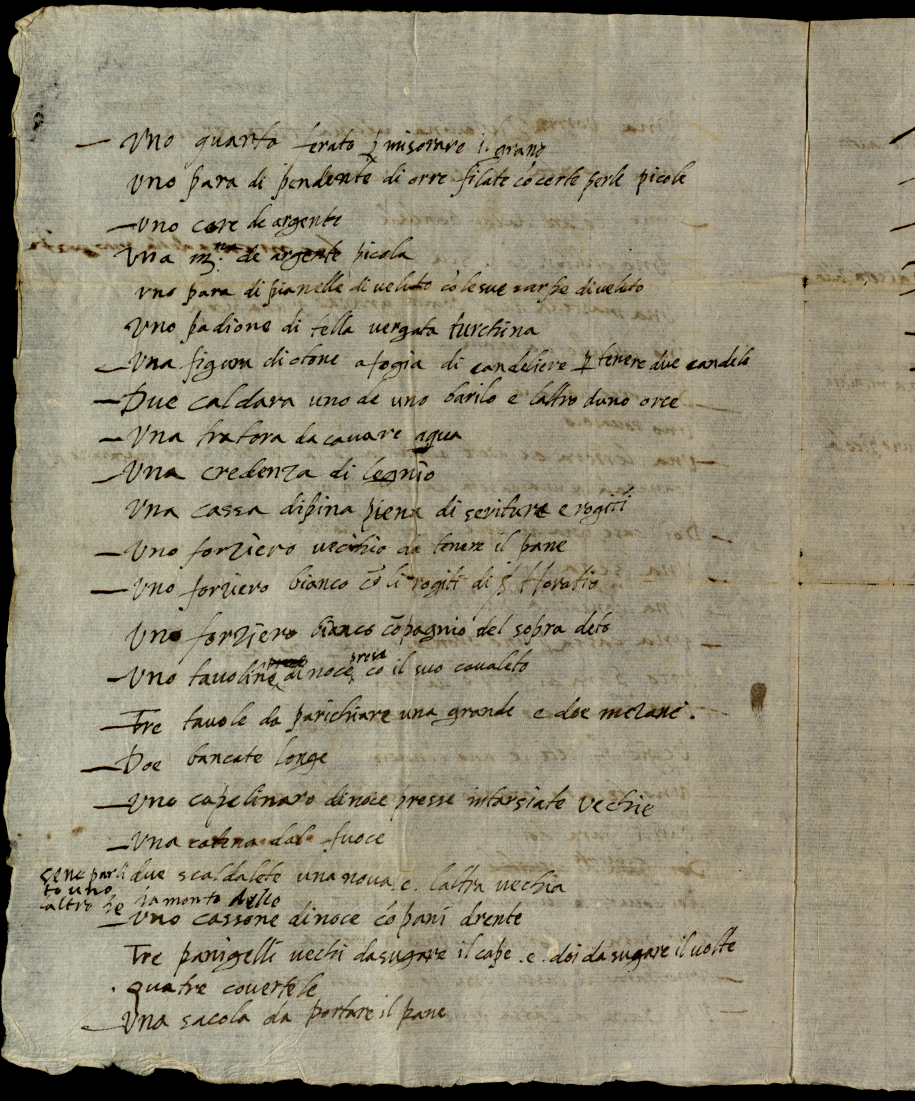 — Uno quarto ferato ꝑ misorare il grano
Uno para di pendente di orre filate cō certe perle picole
— Uno core de argente
Una de argente picola
Uno para di pianelle di veluto cō le sue scarpe di veluto
Uno padione di tella vergata turchina
— Una figura di otone a fogia di candeliere ꝑ tenere due candele
— Due caldara uno de uno barilo e laltro duno orce
— Una tratora da cavare aqua
— Una credenza di legnio
Una cassa dipina piena di scriture e rogiti
— Uno forziero vechio da tenere il pane
— Uno forziero bianco cō li rogiti di Horatio
Uno forziero bianco cōpagnio del sopra deto
— Uno tavoline di noce presa cō il suo cavaleto
— Tre tavole da parichiare una grande e doe mezane.
— Doe bancate longe
— Uno capelinaro di noce presse intarsiate vechie
— Una catina dal fuoce
due scaldalete una nova e laltra vechia
to uno
altro
— Uno cassone di noce cō pani drente
Tre panigelli vechi da sugare il cape .e. doi da sugare il volte
. quatre covertele
— Una sacola da portare il pane